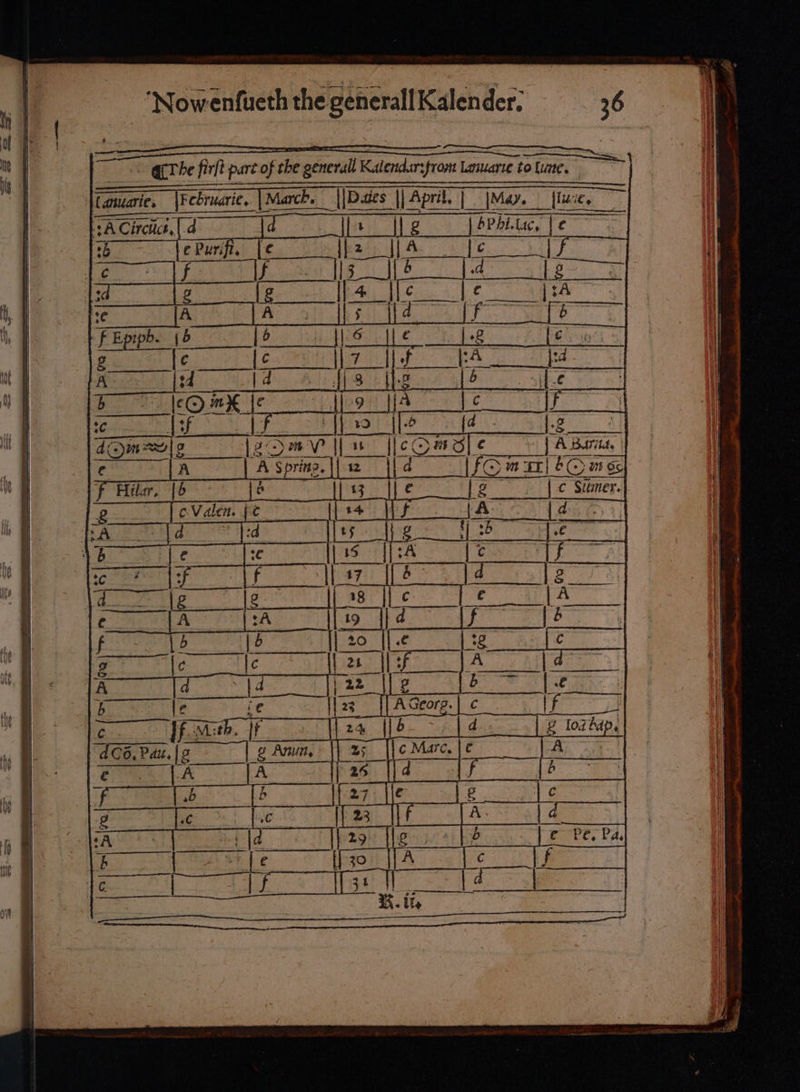 Now ensueth the generall Kalender. 36
The first part of the generall Kalendar: from Ianuarie to Iune.
Ianuarie. Februarie. March. Daies April. May. Iune.
:A Circūcis. d d 1 g bPhi.Iac. e
:b e Purifi. e 2 A c f
c f f 3 b .d g
:d g g 4 c e :A
:e A A 5 d f b
f Epiph. b b 6 e .g c
g c c 7 .f :A :d
A :d d 8 .g b .e
b e☉in♓ e 9 A c f
:c :f f 10 .b d .g
d☉in♒ g g☉in♈ 11 c☉in♉ e A Barna.
e A A Spring. 12 d f☉in♊ b☉in♋
f Hilar. b b 13 e g c Sūmer.
g c Valen. c 14 f A d
:A d :d 15 g :b .e
b e :e 16 :A c f
:c :f f 17 b d g
d g g 18 c e A
e A :A 19 d f b
f b b 20 .e :g c
g c c 21 :f A d
A d d 22 g b .e
b e e 23 A Georg. c f
c f Math. f 24 b d g Ioābap.
dCō.Pau. g g Anun. 25 c Marc. e A
e A A 26 d f b
f .b b 27 e g c
g .c .c 28 f A d
:A d 29 g b e Pe. Pa.
b e 30 A c f
c f 31 d